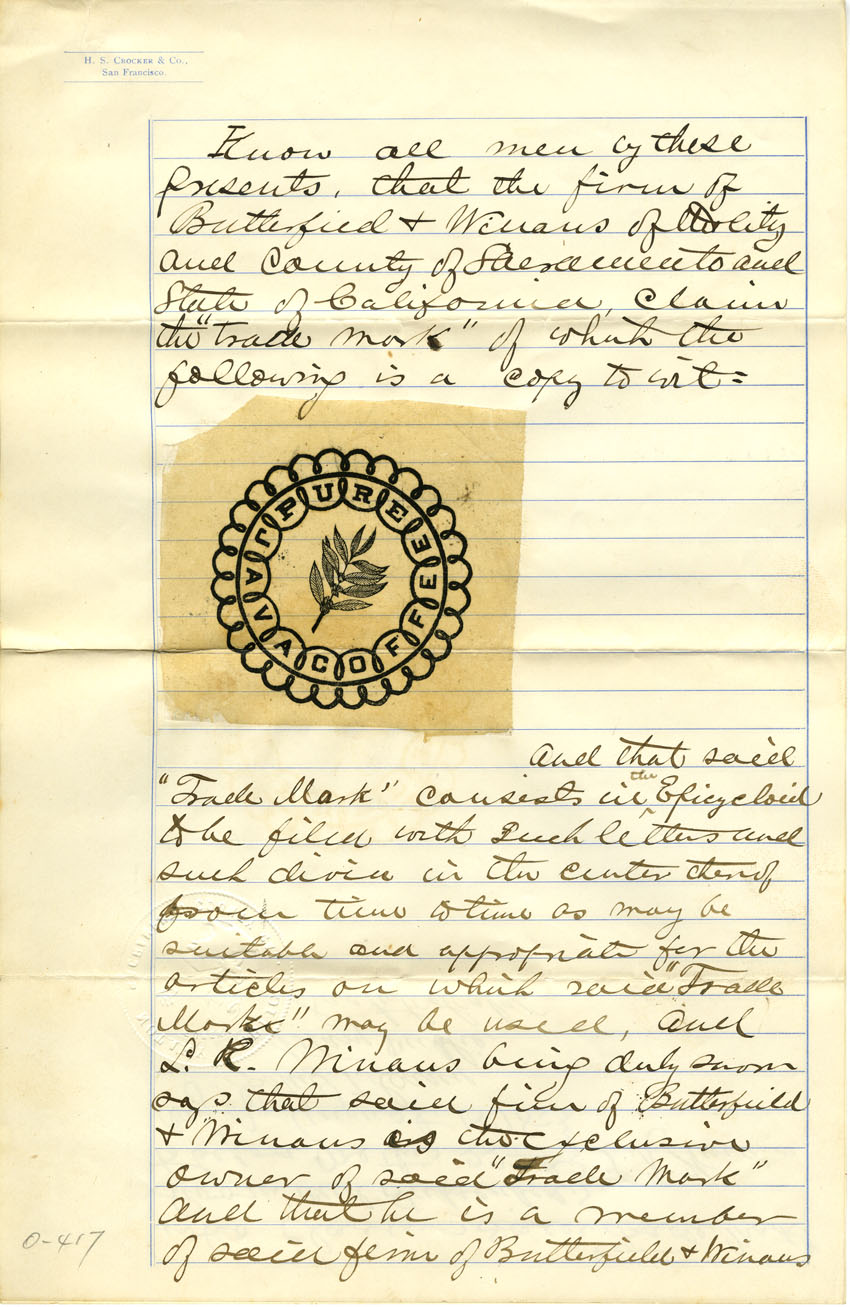 H. S. CROCKER & CO.,
San Francisco.
Know all men by these
presents, that the firm of
Butterfield & Winans of the City
and County of Sacramento and
State of California, claim
the "trade mark" of which the
following is a copy to wit =
PURE JAVA COFFEE
and that said
"Trade Mark" consists in the Epicycloid
to be filed with such letters and
such divice in the center therof
from time to time as may be
suitable and appropriate for the
articles on which said "Trade
Marke" may be used, and
L. K. Winans being duly sworn
says that said firm of Butterfield
& Winans is the exclusive
owner of said "Trade Mark"
and that he is a member
of said firm of Butterfield & Winans
0-417